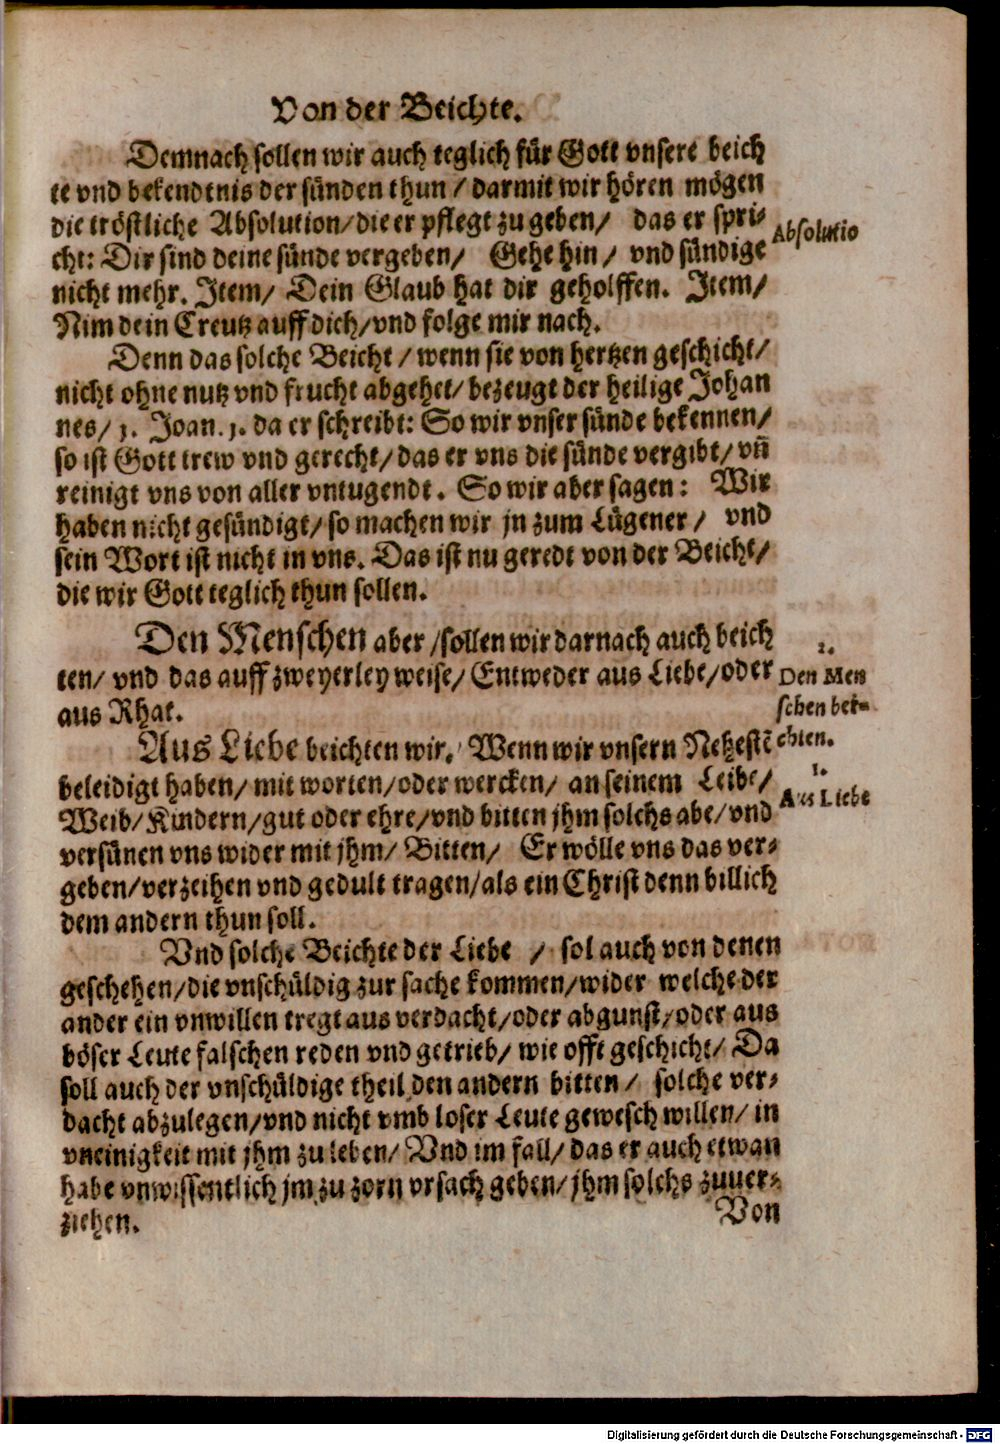 Von der Beichte.
Demnach sollen wir auch teglich für Gott vnsere beich
te vnd bekendtnis der sünden thun / darmit wir hören mögen
die tröstliche Absolution/die er pflegt zu geben/ das er spri-
cht: Dir sind deine sünde vergeben/ Gehe hin / vnd sündige
nicht mehr. Item/ Dein Glaub hat dir geholffen. Item/
Nim dein Creutz auff dich/vnd folge mir nach.
Absolutio
Denn das solche Beicht / wenn sie von hertzen geschicht/
nicht ohne nutz vnd frucht abgehet/ bezeugt der heilige Johan
nes/ 1. Joan. 1. da er schreibt: So wir vnser sünde bekennen/
so ist Gott trew vnd gerecht/das er vns die sünde vergibt/ vn̄
reinigt vns von aller vntugendt. So wir aber sagen: Wir
haben nicht gesündigt/ so machen wir jn zum Lügener / vnd
sein Wort ist nicht in vns. Das ist nu geredt von der Beicht/
die wir Gott teglich thun sollen.
Den Menschen aber /sollen wir darnach auch beich
ten/ vnd das auff zweyerley weise/ Entweder aus Liebe/oder
aus Rhat.
2.
Den Men
schen bei-
chten.
Aus Liebe beichten wir. Wenn wir vnsern Nehestē
beleidigt haben/ mit worten/oder wercken/ an seinem Leibe/
Weib/ Kindern/gut oder ehre/vnd bitten jhm solchs abe/ vnd
versünen vns wider mit jhm/ Bitten/ Er wölle vns das ver-
geben/verzeihen vnd gedult tragen/als ein Christ denn billich
dem andern thun soll.
1.
Aus Liebe
Vnd solche Beichte der Liebe / sol auch von denen
geschehen/die vnschüldig zur sache kommen/wider welche der
ander ein vnwillen tregt aus verdacht/oder abgunst/oder aus
böser Leute falschen reden vnd getrieb/ wie offt geschicht/ Da
soll auch der vnschüldige theil den andern bitten / solche ver-
dacht abzulegen/vnd nicht vmb loser Leute gewesch willen/ in
vneinigkeit mit jhm zu leben/ Vnd im fall/ das er auch etwan
habe vnwissentlich jm zu zorn vrsach geben/ jhm solchs zuuer-
ziehen.
Von
Digitalisierung gefördert durch die Deutsche Forschungsgemeinschaft - DFG